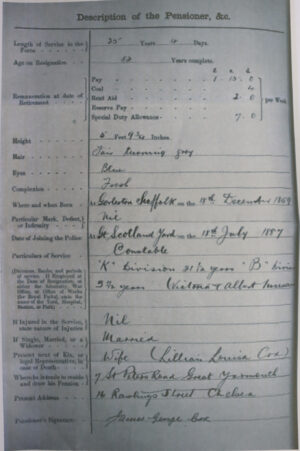 Description of the Pensioner, &c.
Length of Service in the Force 25 Years 4 Days.
Age on Resignation 52 Years complete.
£ s. d.
Remuneration at date of Retirement
Pay 1 13 0
Coal 4
Rent Aid 2 0
Reserve Pay
Special Duty Allowance 7 0
per Week
Height 5 Feet 9¼ Inches.
Hair Fair turning grey
Eyes Blue
Complexion Fresh
Where and when Born at Gorleston Suffolk on the 18th December
Particular Mark, Defect, or Infirmity Nil
Date of Joining the Police at Gt Scotland Yard on the 18th July 1887
Constable
Particulars of Service "K" Division 21½ years "B"
(Divisions, Ranks, and periods of service. If Employed at the Date of Resignation, at either the Admiralty, War Office, or Office of Works (the Royal Parks), state the name of the Yard, Hospital, Station, or Park)
years (Victoria & Albert
If Injured in the Service, state nature of Injury Nil
If Single, Married, or a Widower Married
Present next of Kin, or legal Representative, in case of Death Wife (Lillian Louisa Cox)
Where he intends to reside and draw his Pension 7 St Peters Road Great Yarmouth
Present Address 16 Rawlings Street Chelsea
Pensioner's Signature James George Cox